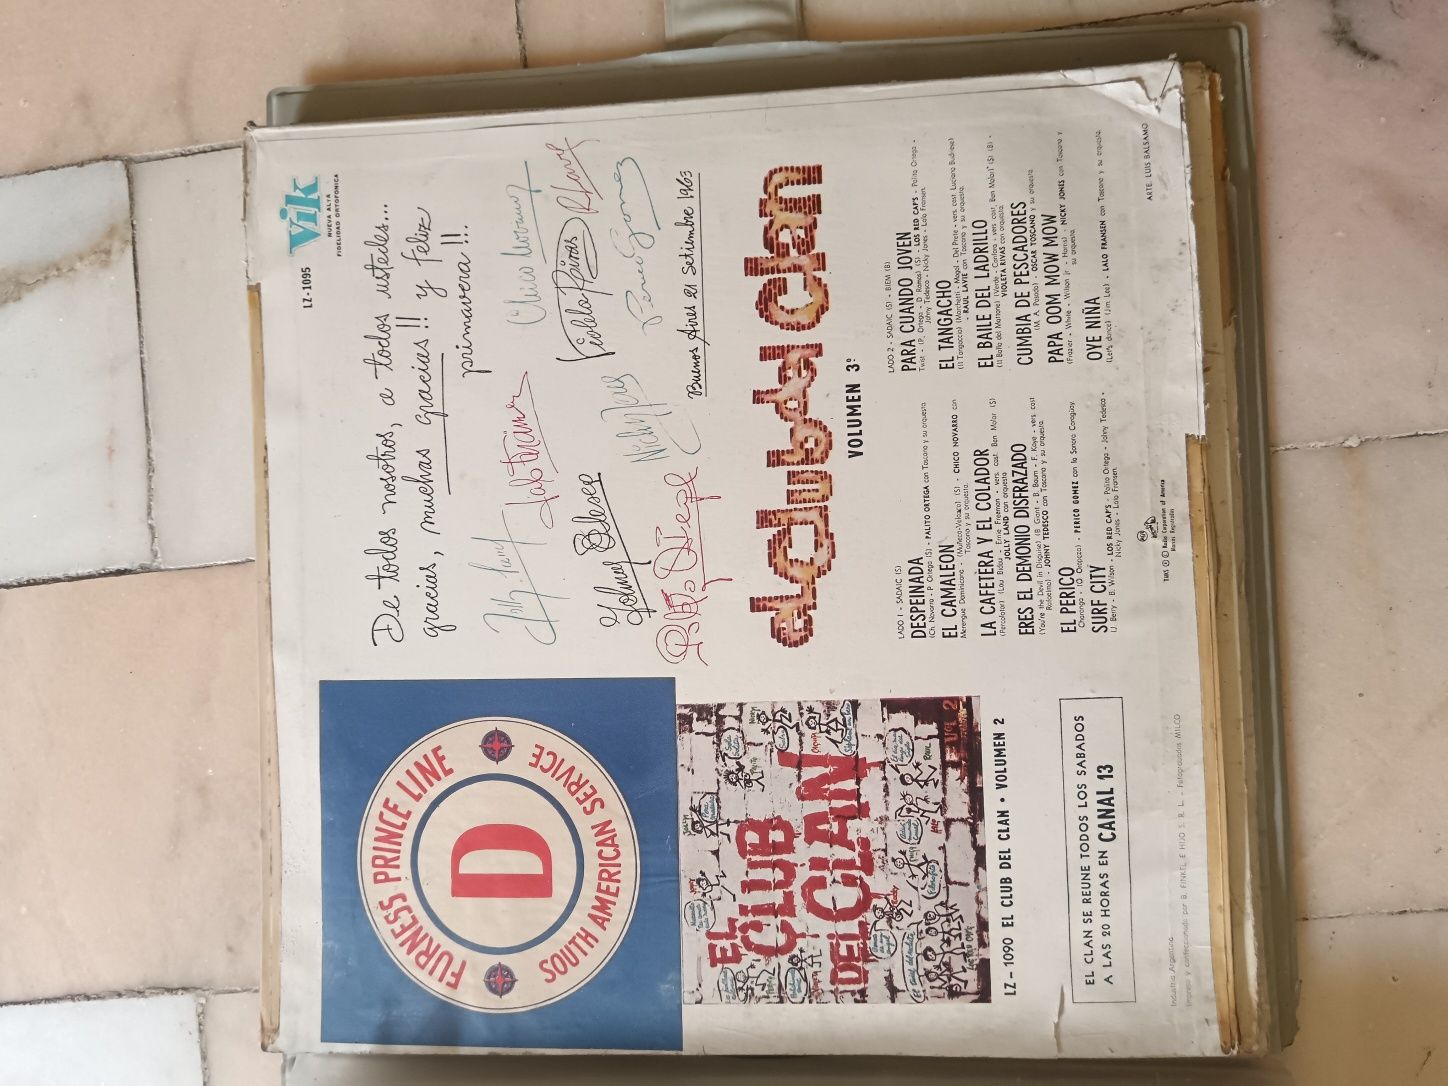 LZ-1095
Vik
NUEVA ALTA
FIDELIDAD ORTOFONICA
De todos nosotros, a todos ustedes...
gracias, muchas gracias!! y feliz
primavera!!..
Jolly Land
Lalo Fransen
Chico Novarro
Johny Tedesco
Nicky Jones
Violeta Rivas
R. Lavie
Palito Ortega
Perico Gomez
Buenos Aires 21 Setiembre 1963
el Club del Clan
VOLUMEN 3º
FURNESS PRINCE LINE
D
SOUTH AMERICAN SERVICE
EL
CLUB
DEL CLAN
VOL 2
LZ-1090 EL CLUB DEL CLAN • VOLUMEN 2
EL CLAN SE REUNE TODOS LOS SABADOS
A LAS 20 HORAS EN CANAL 13
LADO 1 - SADAIC (S)
DESPEINADA
(Ch. Novarro - P. Ortega (S) - PALITO ORTEGA con Toscano y su orquesta
EL CAMALEON
Merengue Dominicano - (Muñeco-Velozco) (S) - CHICO NOVARRO con
Toscano y su orquesta.
LA CAFETERA Y EL COLADOR
(Percolator) (Lou Bideu - Ernie Freeman - vers. cast. Ben Molar (S)
JOLLY LAND con orquesta
ERES EL DEMONIO DISFRAZADO
(You're the Devil in Disguise) (B. Giant - B. Baum - F. Kaye - vers. cast
- JOHNY TEDESCO con Toscano y su orquesta.
EL PERICO
Charanga - (O. Orozco) - PERICO GOMEZ con la Sonora Caraguay.
SURF CITY
(J. Berry - B. Wilson - LOS RED CAPS - Palito Ortega - Johny Tedesco -
Nicky Jones - Lalo Fransen.
LADO 2 - SADAIC (S) - BIEM (B)
PARA CUANDO JOVEN
Twist - (P. Ortega - D. Ramos) (S) - LOS RED CAPS - Palito Ortega -
Johny Tedesco - Nicky Jones - Lalo Fransen.
EL TANGACHO
(Il Tangaccio) (Marchetti - Mogol - Del Prete - vers. cast. Luciana Budinee)
- RAUL LAVIE con Toscano y su orquesta.
EL BAILE DEL LADRILLO
(Il Ballo del Mattone) (Verde - Canfora - vers. cast. Ben Molar) (S) (B) -
VIOLETA RIVAS con orquesta.
CUMBIA DE PESCADORES
(M. A. Posada) - OSCAR TOSCANO y su orquesta
PAPA OOM MOW MOW
(Frazier - White - Wilson Jr. - Harris) - NICKY JONES con Toscano y
su orquesta.
OYE NIÑA
(Let's dance) (Jim Lee) - LALO FRANSEN con Toscano y su orquesta.
ARTE: LUIS BALSAMO
TMKS ® © Radio Corporation of America
Marcas Registradas
RCA
Industria Argentina
Impreso y confeccionado por B. FINKEL E HIJO S. R. L. - Fotograbados MILCO